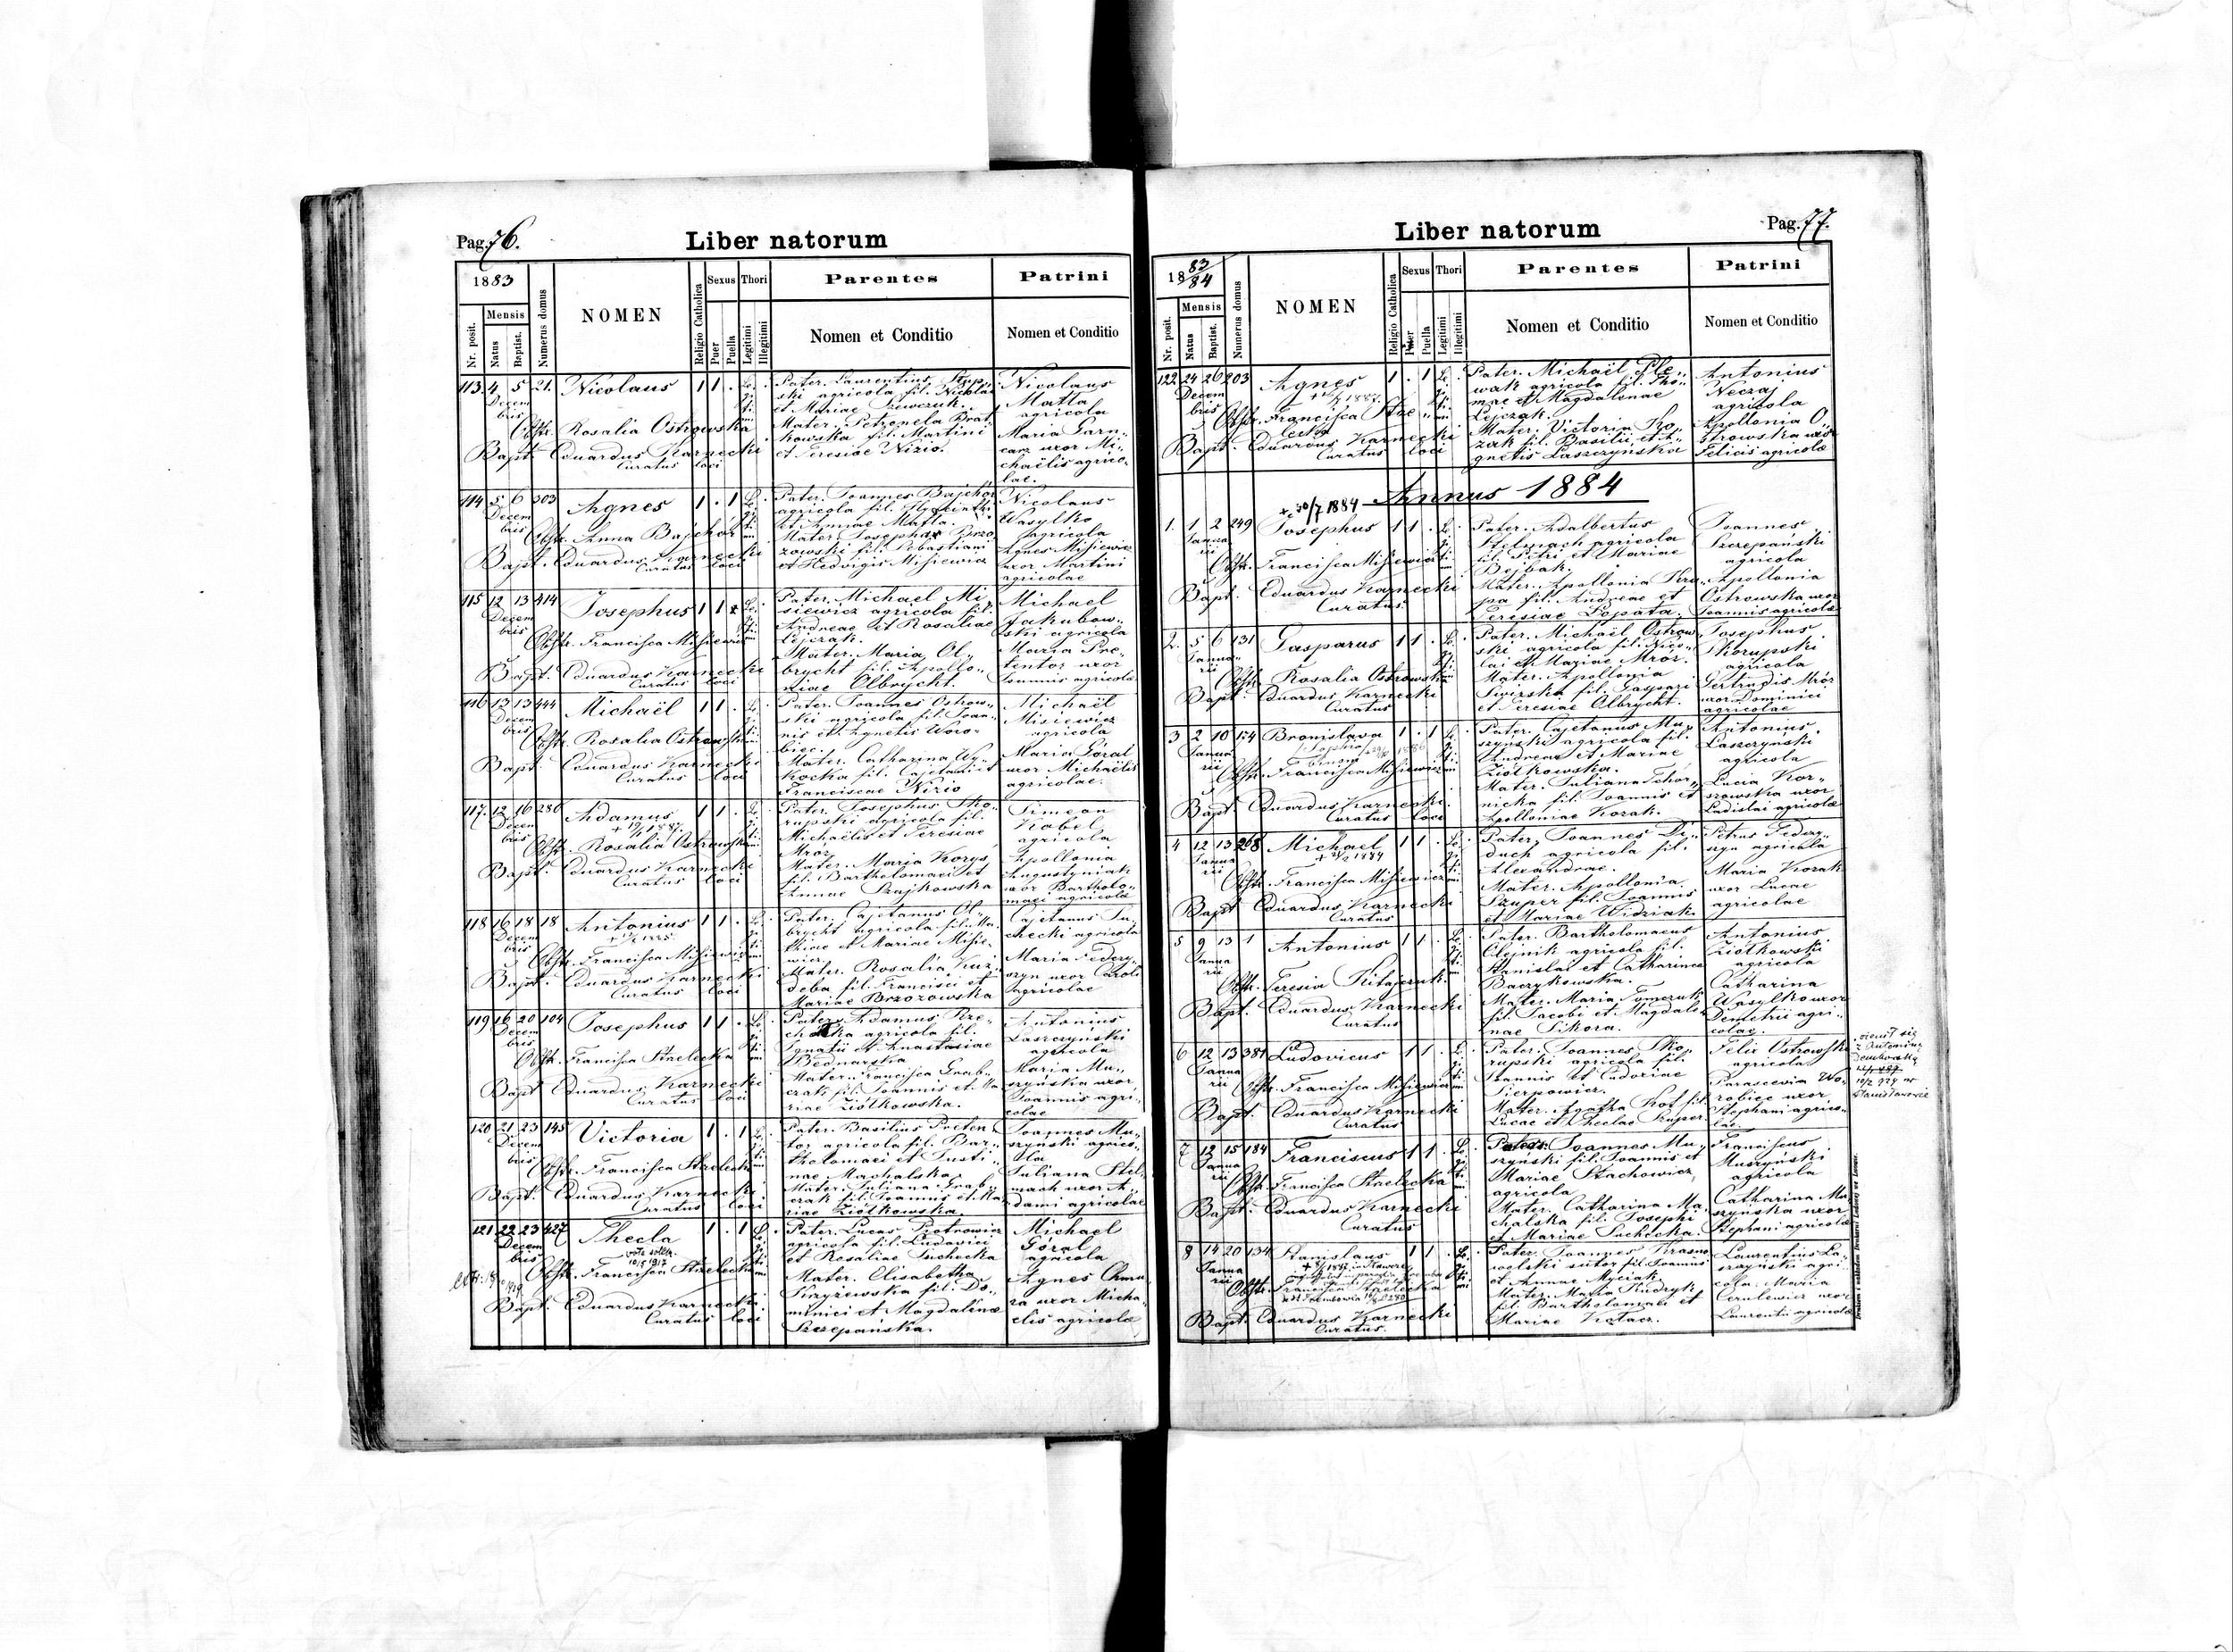 Pag. 76.
Liber natorum
1883
Nr. posit.
Mensis
Natus
Baptist.
Numerus domus
NOMEN
Religio Catholica
Sexus
Puer
Puella
Thori
Legitimi
Illegitimi
Parentes
Nomen et Conditio
Patrini
Nomen et Conditio
113. 4 5 21. Nicolaus 1 1 .
Decem
bris
Obstr. Rosalia Ostrowska
Bapt. Eduardus Karnecki
Curatus loci
agricola fil. Nicolai
et Mariae Szewczuk.
Mater. Petronela Brat-
kowska fil. Martini
et Teresiae Nizio.
Nicolaus
Matla
agricola
Maria Garn-
carz uxor Mi-
chaëlis agrico-
lae.
114 5 6 303 Agnes 1 . 1
Decem
bris
Obstr. Anna Bajchor
Bapt. Eduardus Karnecki
Curatus loci
Pater. Joannes Bajchor
agricola fil. Hyacinthi
et Annae Matla.
Mater Josepha Brzo
zowski fil. Sebastiani
et Hedvigis Misiewicz
Nicolaus
Wasylko
agricola
Agnes Misiewicz
uxor Martini
agricolae
115 12 13 414 Josephus 1 1
Decem
bris
Obstr. Francisca Misiewicz
Bapt. Eduardus Karnecki
Curatus loci
Pater. Michael Mi
siewicz agricola fil.
Andreae et Rosaliae
Lejczak.
Mater. Maria Ol-
brycht fil. Apollo-
niae Olbrycht.
Michael
Jakubow-
ski agricola
Maria Pre-
tentor uxor
Joannis agricolae
116 13 13 444 Michaël 1 1 .
Decem
bris
Obstr. Rosalia Ostrowska
Bapt. Eduardus Karnecki
Curatus loci
Pater. Joannes Ostrow-
ski agricola fil. Joan-
nis et Agnetis Woro-
biec.
Mater. Catharina Wy-
kocka fil. Cajetani et
Franciscae Nizio
Michaël
Misiewicz
agricola
Maria Góral
uxor Michaëlis
agricolae.
117. 12 16 286 Adamus 1 1 .
Decem
bris
Obstr. Rosalia Ostrowska
Bapt. Eduardus Karnecki
Curatus loci
Pater. Josephus Sko-
rupski agricola fil.
Michaëlis et Teresiae
Mroz
Mater. Maria Korys
fil. Bartholomaei et
Annae Szajkowska
Simeon
Kobel
agricola
Apollonia
Augustyniak
uxor Bartholo-
maei agricolae
118 16 18 18 Antonius 1 1 .
Decem
bris
Obstr. Francisca Misiewicz
Bapt. Eduardus Karnecki
Curatus loci
Pater. Cajetanus Ol-
brycht agricola fil. Ma
thiae et Mariae Misie-
wicz.
Mater. Rosalia Kuz-
deba fil. Francisci et
Mariae Brzozowska
Cajetanus Su-
checki agricola
Maria Federy-
szyn uxor Caroli
agricolae
119 16 20 104 Josephus 1 1 .
Decem
bris
Obstr. Francisca Strzelecka
Bapt. Eduardus Karnecki
Curatus loci
Pater. Adamus Rze-
agricola fil.
Ignatii et Anastasiae
Bednarska
Mater. Francisca Grab-
czak fil. Joannis et Ma
riae Ziółkowska.
Antonius
Laszczynski
agricola
Maria Mu-
szyńska uxor
Joannis agri-
colae
120 21 23 145 Victoria 1 . 1
Decem
bris
Obstr. Francisca Strzelecka
Bapt. Eduardus Karnecki
Curatus loci
Pater. Basilius Preten
tor agricola fil. Bar-
tholomaei et Justi
nae Machalska.
Mater. Juliana Grab-
czak fil. Joannis et Ma
riae Ziółkowska.
Joannes Mu-
szynski agrico-
la
Juliana Stel-
mach uxor A-
dami agricolae
121 22 23 427 Thecla 1 . 1
Decem
bris
10/5 1917
Obstr. Francisca Strzelecka
Bapt. Eduardus Karnecki
Curatus loci
Pater. Lucas Piotrowicz
agricola fil. Ludovici
et Rosaliae Suchecka
Mater. Elisabetha
Krzyżewska fil. Do-
minici et Magdalenae
Szczepańska.
Michael
Góral
agricola
Agnes Chmu
ra uxor Micha-
elis agricolae
Pag. 77.
Liber natorum
18 83/84
Nr. posit.
Mensis
Natus
Baptist.
Numerus domus
NOMEN
Religio Catholica
Sexus
Puer
Puella
Thori
Legitimi
Illegitimi
Parentes
Nomen et Conditio
Patrini
Nomen et Conditio
122 24 26 203 Agnes 1 . 1
Decem
bris
Obstr. Francisca Strze-
lecka
Bapt. Eduardus Karnecki
Curatus loci
Pater. Michaël Ple-
wak agricola fil. Tho-
mae et Magdalenae
Lejczak.
Mater. Victoria Ko-
zak fil. Basilii et A-
gnetis Laszczynska
Antonius
Neczaj
agricola
Apollonia O-
strowska uxor
Felicis agricolae
+ 30/7 1884 Annus 1884
1. 1 2 249 Josephus 1 1 .
Janua
rii
Obstr. Francisca Misiewicz
Bapt. Eduardus Karnecki
Curatus
Pater. Adalbertus
Stelmach agricola
fil. Petri et Mariae
Bejbak.
Mater. Apollonia Kru-
pa fil. Andreae et
Teresiae Łopata.
Joannes
Szczepański
agricola
Apollonia
Ostrowska uxor
Joannis agricolae
2. 5 6 131 Gasparus 1 1 .
Janua-
rii
Obstr. Rosalia Ostrowska
Bapt. Eduardus Karnecki
Curatus
Pater. Michaël Ostrow-
ski agricola fil. Nico-
lai et Mariae Mróz.
Mater. Apollonia
Swirska fil. Gaspari
et Teresiae Olbrycht.
Josephus
Skorupski
agricola
Gertrudis Mróz
uxor Dominici
agricolae
3 2 10 154 Bronislava 1 . 1
Janua
rii
Obstr. Francisca Misiewicz
Bapt. Eduardus Karnecki
Curatus loci
Pater. Cajetanus Mu-
szyński agricola fil.
Andreae et Mariae
Ziółkowska.
Mater. Juliana Tchór-
nicka fil. Joannis et
Apolloniae Kozak.
Antonius
Laszczynski
agricola
Lucia Kor-
szowska uxor
Ladislai agricolae
4 12 13 268 Michael 1 1 .
Janua
rii
Obstr. Francisca Misiewicz
Bapt. Eduardus Karnecki
Curatus
Pater. Joannes Di-
duch agricola fil.
Alexandrae.
Mater. Apollonia
Szuper fil. Joannis
et Mariae Widziak.
Petrus Federy-
szyn agricola
Maria Kozak
uxor Lucae
agricolae
5 9 13 1 Antonius 1 1 .
Janua
rii
Obstr. Teresia Kitajczuk
Bapt. Eduardus Karnecki
Curatus
Pater. Bartholomaeus
Olejnik agricola fil.
Stanislai et Catharinae
Baczykowska.
Mater. Maria Tomczuk
fil. Jacobi et Magdale
nae Sikora.
Antonius
Ziółkowski
agricola
Catharina
Wasylko uxor
Demetrii agri-
colae.
6 12 13 381 Ludovicus 1 1 .
Janua
rii
Obstr. Francisca Misiewicz
Bapt. Eduardus Karnecki
Curatus
Pater. Joannes Sko-
rupski agricola fil.
Joannis et Eudoxiae
Sierpowicz.
Mater. Agatha Kot fil.
Lucae et Theclae Szuper.
Felix Ostrowski
agricola
Parascevia Wo-
robiec uxor
Stephani agrico-
lae.
7 12 15 184 Franciscus 1 1 .
Janua
rii
Obstr. Francisca Strzelecka
Bapt. Eduardus Karnecki
Curatus
Pater. Joannes Mu-
szynski fil. Joannis et
Mariae Stachowicz
agricola
Mater. Catharina Ma
chalska fil. Josephi
et Mariae Suchecka.
Franciscus
Muszyński
agricola
Catharina Mu
szyńska uxor
Stephani agricolae
8 14 20 134 Stanislaus 1 1 .
Janua
rii
Obstr. Francisca Strzelecka
Bapt. Eduardus Karnecki
Curatus.
Pater. Joannes Krasno
wolski sutor fil. Joannis
et Annae Myciak
Mater. Maria Kudryk
fil. Bartholomaei et
Mariae Kotacz.
Laurentius La-
szzyński agri-
cola. Maria
Cerulewicz uxor
Laurentii agricolae